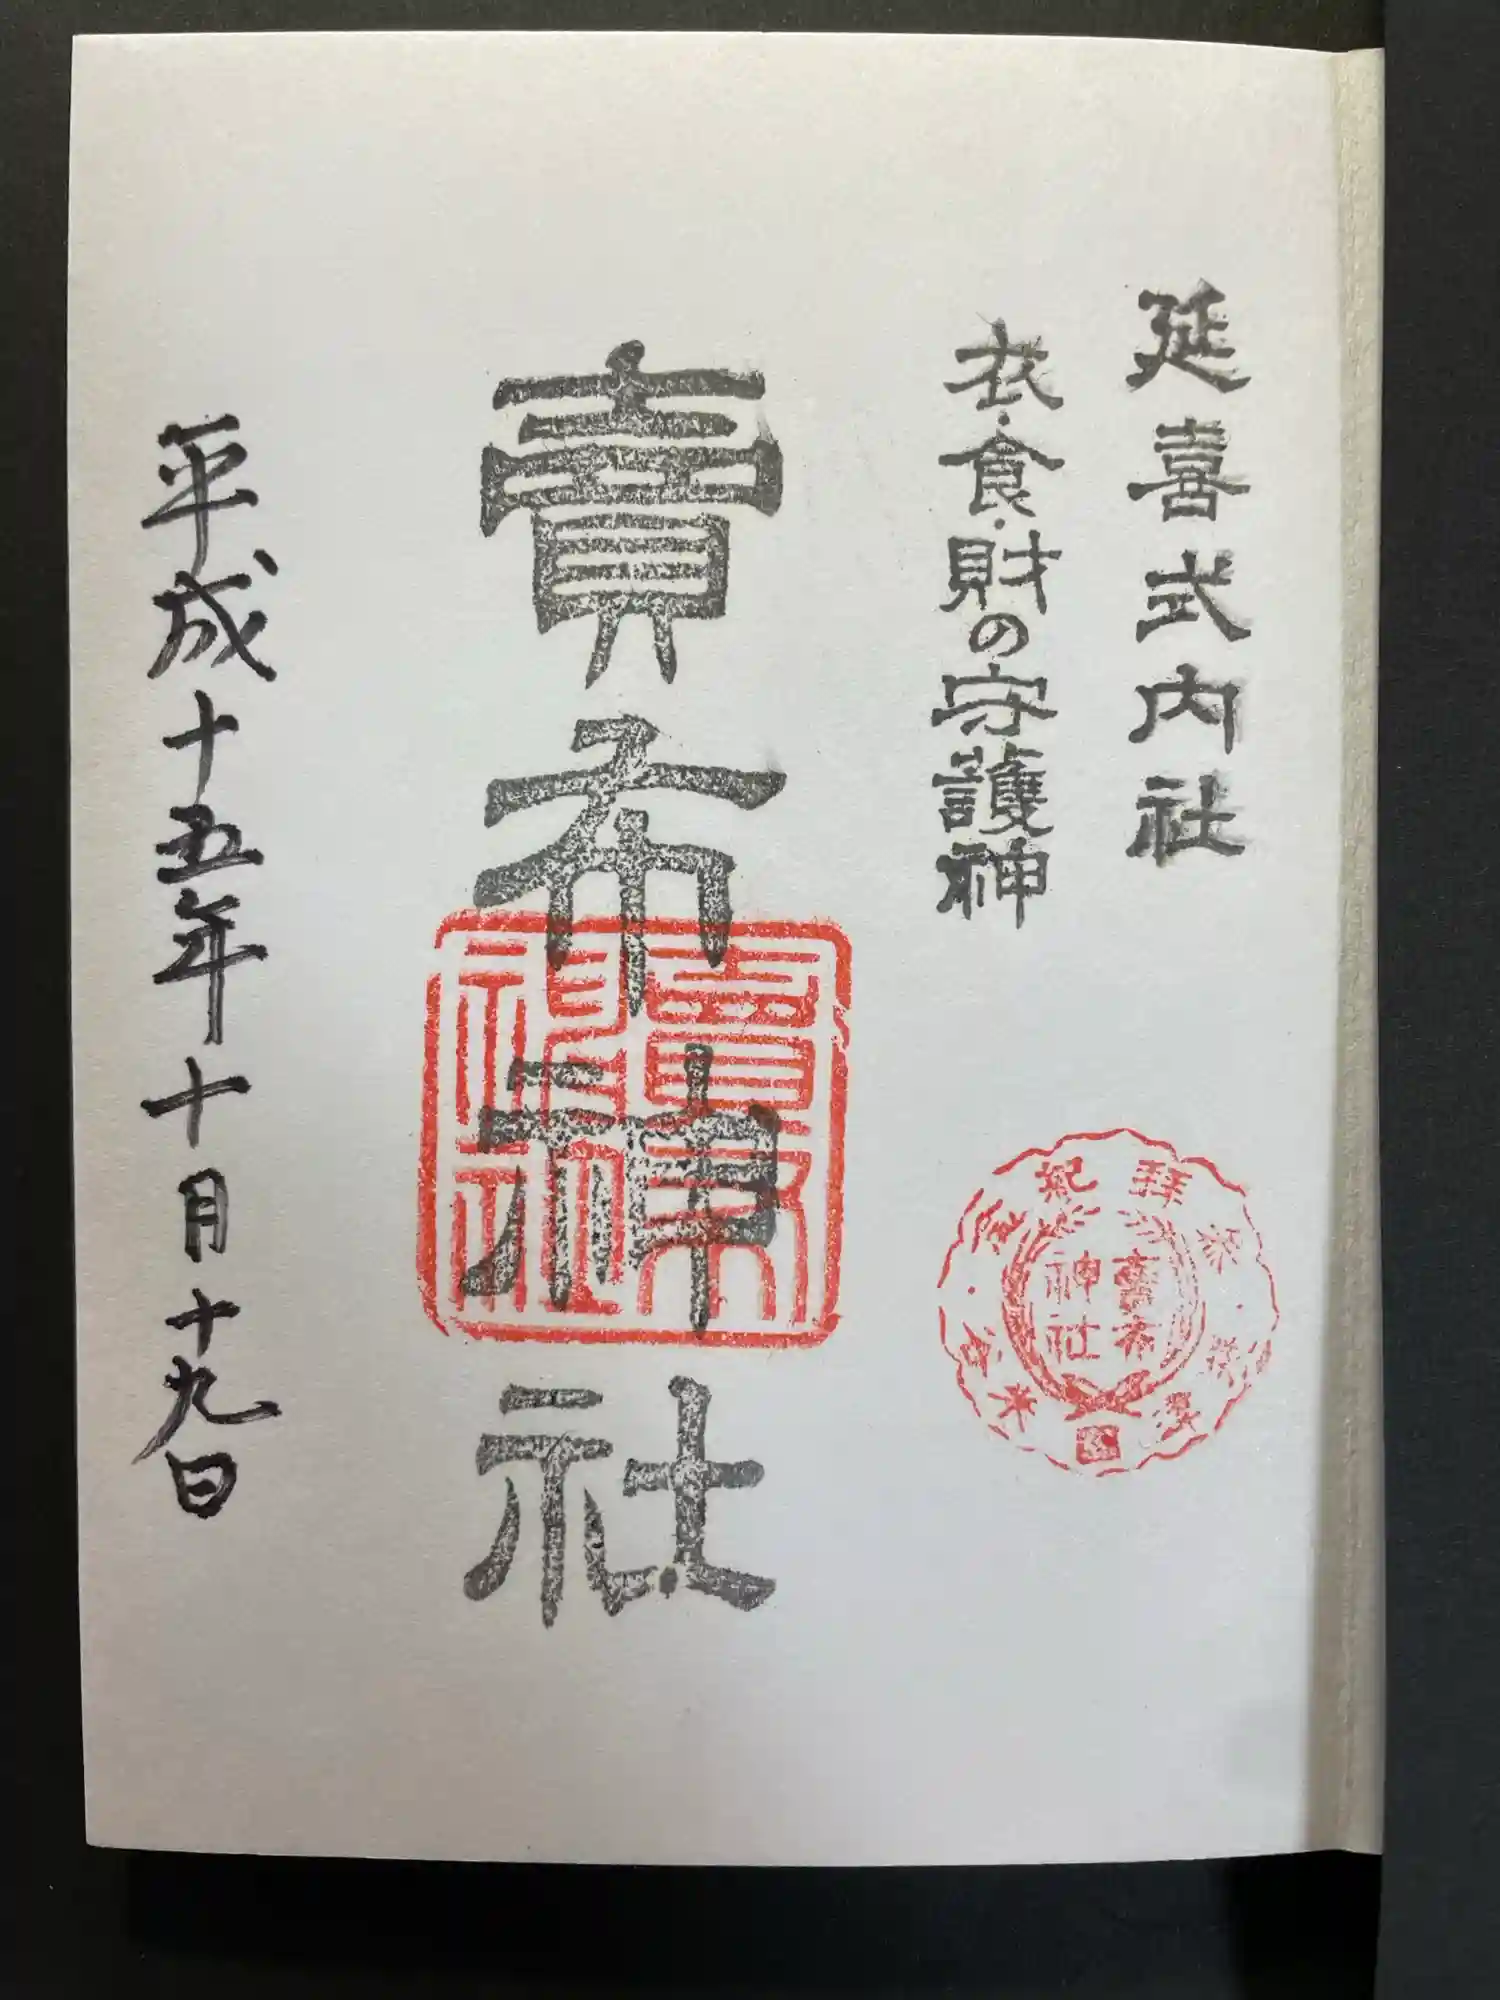 延喜式内社
衣・食・財の守護神
賣布神社
平成十五年十月十九日
賣布神社
拝
紀
賣布
神社